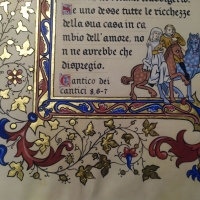 Se uno desse tutte le ricchezze
della sua casa in ca
mbio dell'amore, no
n ne avrebbe che
dispregio.
Cantico dei
cantici 8.6-7